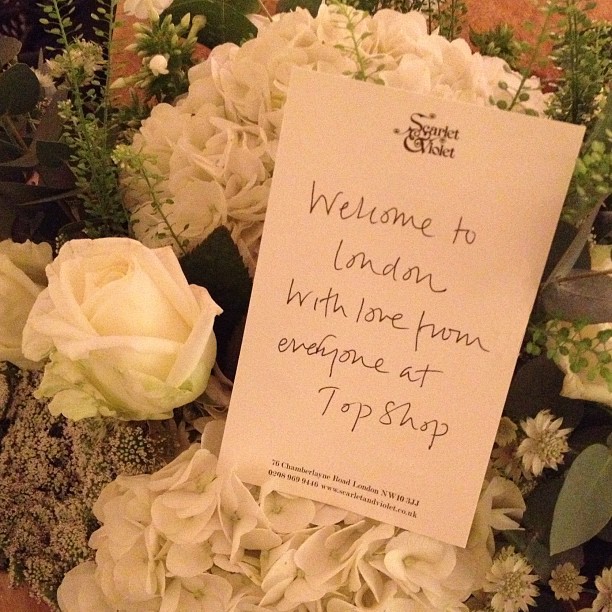 Scarlet
& Violet
Welcome to
london
With love from
everyone at
Top Shop
76 Chamberlayne Road London NW10 3JJ
0208 969 9446 www.scarletandviolet.co.uk